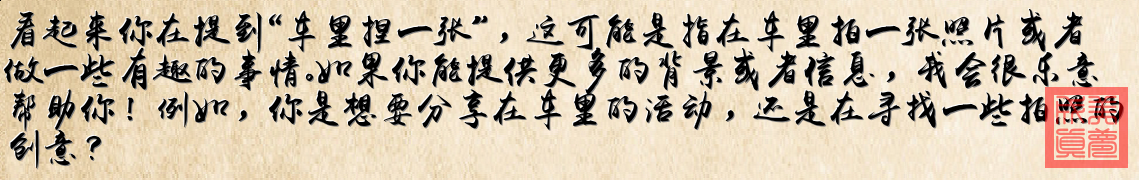 看起来你在提到“车里捏一张”，这可能是指在车里拍一张照片或者
做一些有趣的事情。如果你能提供更多的背景或者信息，我会很乐意
帮助你！例如，你是想要分享在车里的活动，还是在寻找一些拍照的
创意？